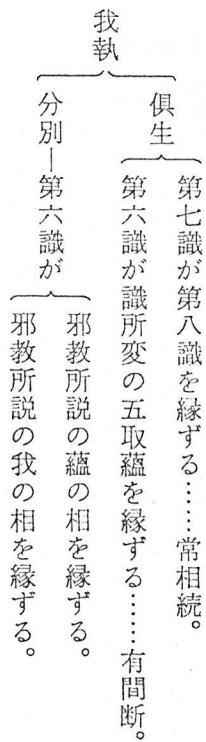 我執
俱生
第七識が第八識を縁ずる……常相続。
第六識が識所変の五取蘊を縁ずる……有間断。
分別―第六識が
邪教所説の蘊の相を縁ずる。
邪教所説の我の相を縁ずる。